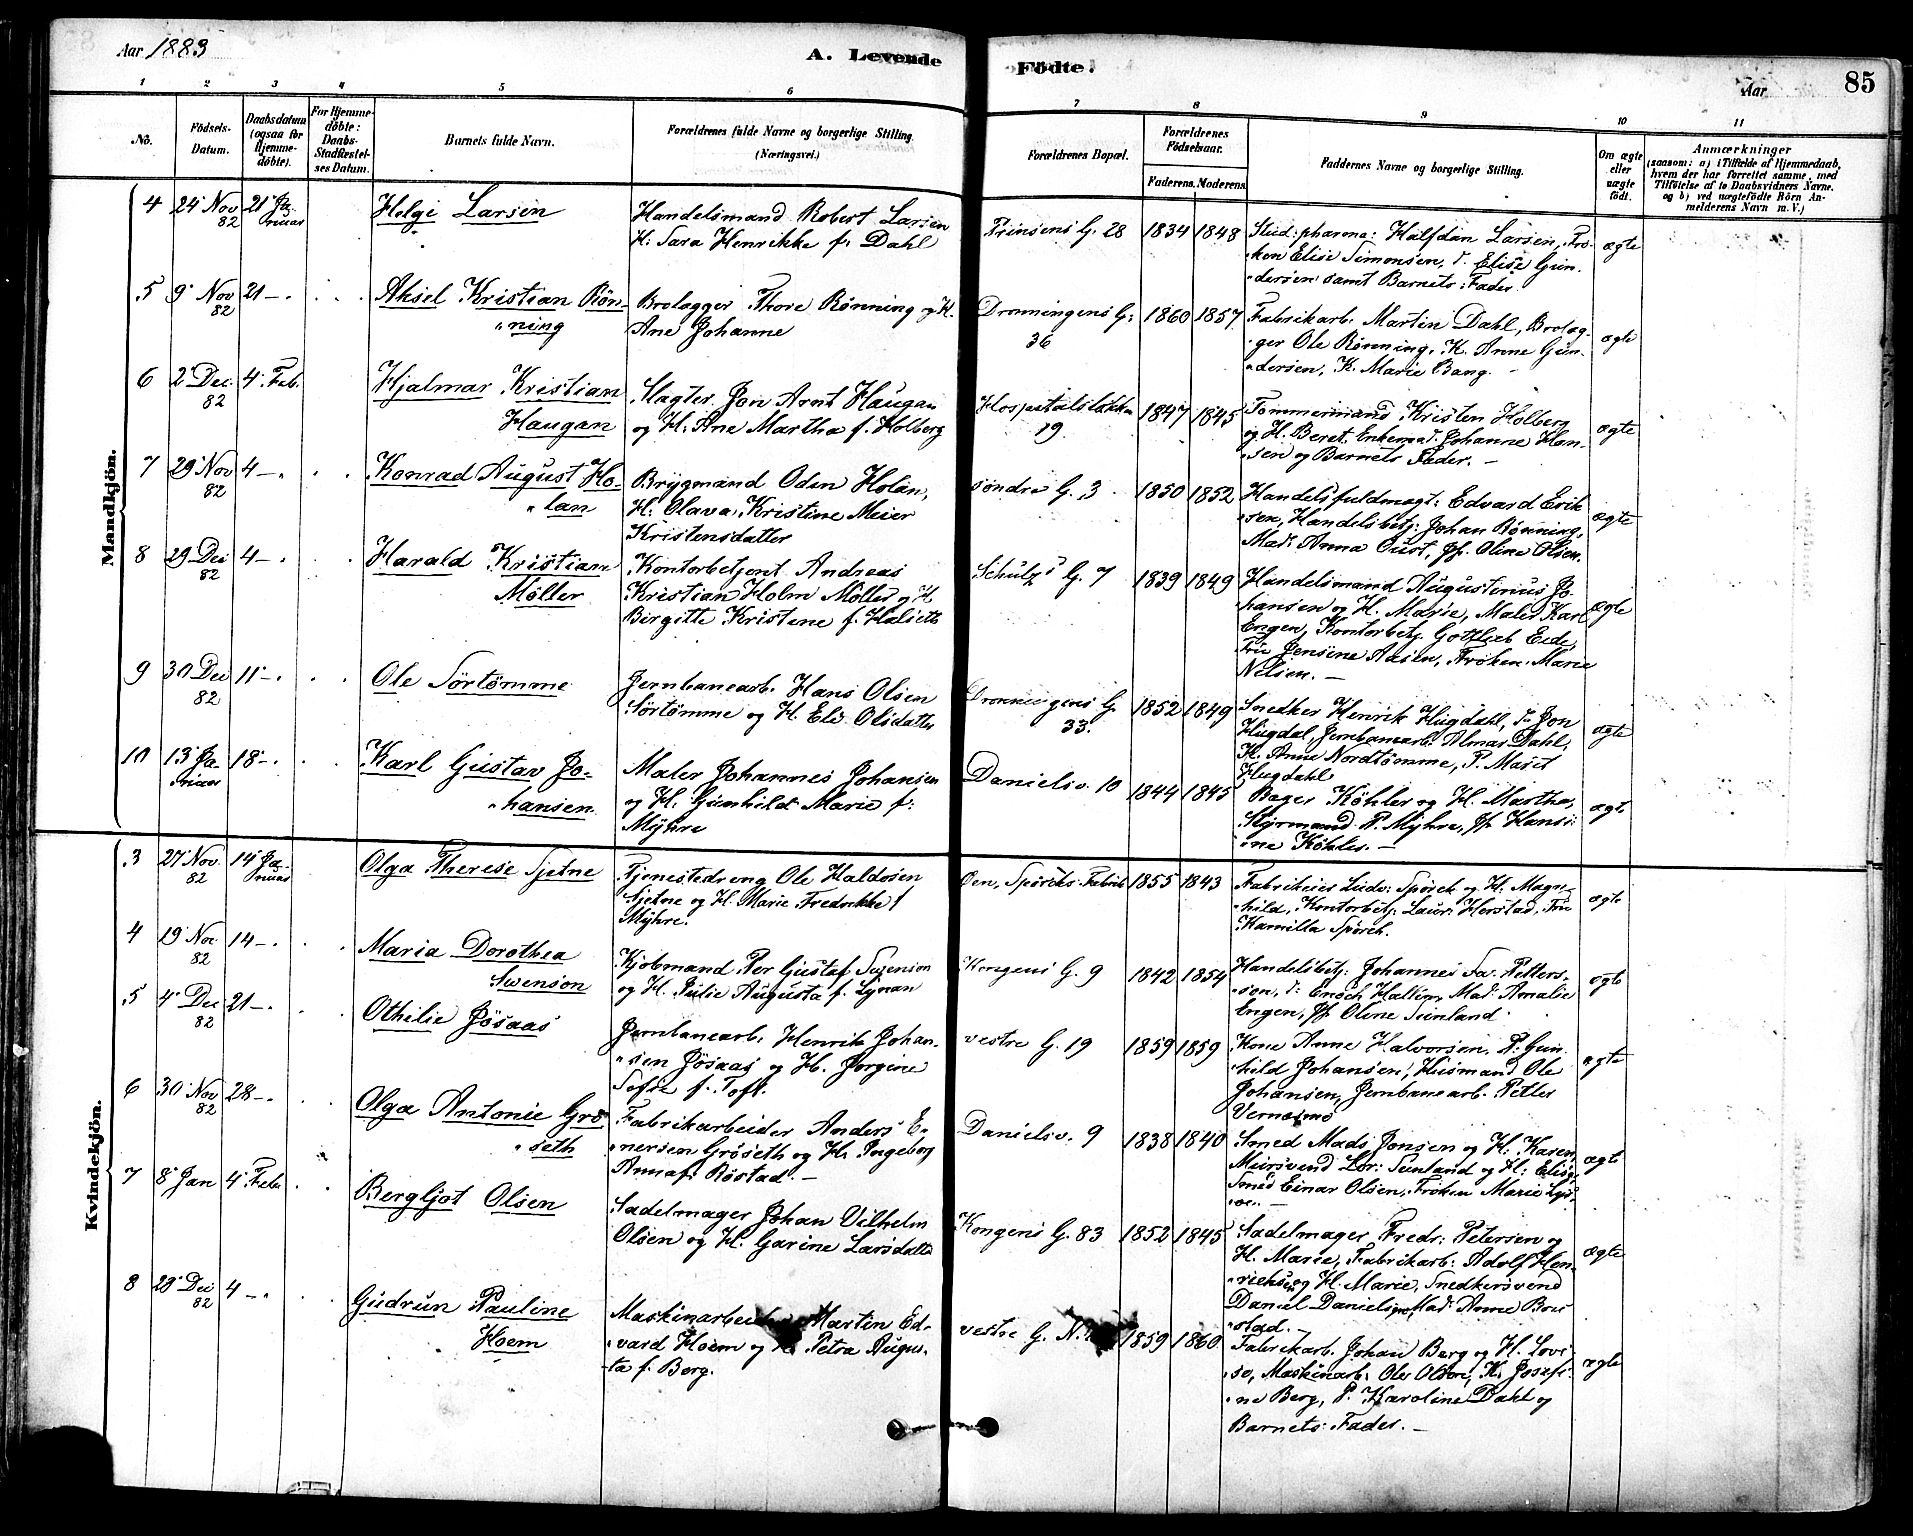 Aar 1883
A. Levende
Födte.
Aar
85
1 2 3 4 5 6 7 8 9 10 11
No.
Födsels-
Datum.
Daabsdatum
(ogsaa for
Hjemme-
döbte).
For Hjemme-
döbte:
Daabs-
Stadfæstel-
ses Datum.
Barnets fulde Navn.
Forældrenes fulde Navne og borgerlige Stilling.
(Næringsvei.)
Forældrenes Bopæl.
Forældrenes
Födselsaar.
Faderens. Moderens.
Faddernes Navne og borgerlige Stilling.
Om ægte
eller
uægte
födt.
Anmærkninger
(saasom: a) i Tilfælde af Hjemmedaab,
hvem der har forrettet samme, med
Tilföielse af to Daabsvidners Navne.
og b) ved uægtefödte Börn An-
melderens Navn m. V.)
Mandkjön.
4 24 Nov 82
21 Ja-
nuar
Helge Larsen
Handelsmand Robert Larsen
H. Sara Henrikke f. Dahl
Prinsens G. 28
1834 1848
Stud: pharma: Halfdan Larsen, Frø-
ken Elise Simonsen, d. Elise Gun-
dersen samt Barnets Fader.
ægte
5 9 Nov 82
21 -
Aksel Kristian Røn-
ning
Brolægger Thore Rønning og H.
Ane Johanne
Dronningens G.
36
1860 1857
Fabrikarb. Martin Dahl, Brolæg-
ger Ole Rønning, K. Anne Gun-
dersen, K. Marie Bang. -
ægte
6 2 Dec. 82
4 Feb.
Hjalmar Kristian
Haugan
Slagter Jon Arnt Haugan
og H. Ane Martha f. Holberg
Hospitalsløkken
19
1847 1845
Tømmermand Kristen Holberg
og H. Beret, Enkemad. Johanne Han-
sen og Barnets Fader. -
ægte
7 29 Nov 82
4 -
Konrad August Ho-
lan
Brygmand Oden Holan,
H. Olava Kristine Meier
Kristensdatter
søndre G. 3
1850 1852
Handelsfuldmægt: Edvard Erik-
sen, Handelsbetj: Johan Rønning,
Mad: Anna Oust, Jf. Oline Olsen.
ægte
8 29 Dec 82
4 -
Harald Kristian
Møller
Kontorbetjent Andreas
Kristian Holm Møller og H
Birgitte Kristine f. Halseth
Schulz's G. 7
1839 1849
Handelsmand Augustinus Jo-
hansen og H. Marie, Maler Karl
Engen, Kontorbetj. Gottlieb Eid,
Fru Jensine Aasen, Frøken Marie
Nilsen. -
ægte
9 30 Dec 82
11 -
Ole Sørtømme
Jernbanearb. Hans Olsen
Sørtømme og H. Eli Olsdatter
Dronningens G.
33.
1852 1849
Snedker Henrik Hugdahl, Jon
Hugdal, Jernbanearb. Almar Dahl,
K. Anne Nordtømme, P. Maret
Hugdahl
ægte
10 13 Ja-
nuar
18 -
Karl Gustav Jo-
hansen
Maler Johannes Johansen
og H. Gunhild Marie f.
Myhre
Danielsv. 10
1844 1845
Bager Køhler og H. Martha,
Styrmand P. Myhre, Jf. Hansi-
ine Køhler. -
ægte
Kvindekjön.
3 27 Nov. 82
14 Ja-
nuar
Olga Therese Sjetne
Tjenestedreng Ole Haldosen
Sjetne og H. Marie Fredrikke f
Myhre.
Øen, Spørcks Fabrik
1855 1843
Fabrikeier Ludv: Spørck og H. Magn-
hild, Kontorbetj. Laur: Herstad, Fru
Kamilla Spørck.
ægte
4 19 Nov 82
14 -
Maria Dorothea
Swenson
Kjøbmand Per Gustaf Svenson
og H. Julie Augusta f. Lynan
Kongens G. 9
1842 1854
Handelsbetj: Johannes Fa. Petters-
son, d: Enoch Hallin, Mad: Amalie
Engen, Jf. Oline Sunland
ægte
5 4 Dec 82
21 -
Othilie Jøsaas
Jernbanearb. Henrik Johan-
sen Jøsaas og H. Jørgine
Sofie f. Toft.
vestre G. 19
1859 1859
Kone Anne Halvorsen, P. Gun-
hild Johansen, Husmand Ole
Johansen, Jernbanearb. Petter
Vernæsmo
ægte
6 30 Nov 82
28 -
Olga Antonie Grø-
seth
Fabrikarbeider Anders E-
nersen Grøseth og H. Ingeborg
Anna f. Røstad. -
Danielsv. 9
1838 1840
Smed Mads Jonsen og H. Karen,
Mursvend Lor: Sunland og H. Elise,
Smed Einar Olsen, Frøken Marie Lys-
ægte
7 8 Jan
4 Feb.
Bergljot Olsen
Sadelmager Johan Vilhelm
Olsen og H. Garine Larsdatter
Kongens G. 83
1852 1845
Sadelmager Fredr: Petersen og
H. Marie, Fabrikarb: Adolf Hen-
riksen og H. Marie, Snedkersvend
Daniel Danielsen, Mad: Anne Bou-
stad. -
ægte
8 28 Dec 82
4 -
Gudrun Pauline
Hoem
Maskinarbeider Martin Ed-
vard Hoem og H. Petra Augus-
ta f. Berg.
vestre G. N.
1859 1860
Fabrikarb. Johan Berg og H. Lovi-
se, Maskinarb: Ole Olsen, K. Josefi-
ne Berg, P. Karoline Dahl og
Barnets Fader. -
ægte